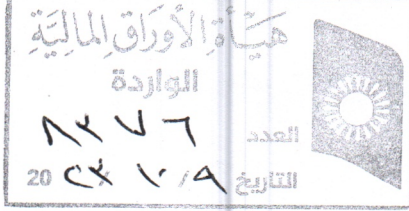 هيأة الأوراق المالية
الواردة
العدد ٨٣٧٦
التاريخ ٩/١٠/ 20٢٣